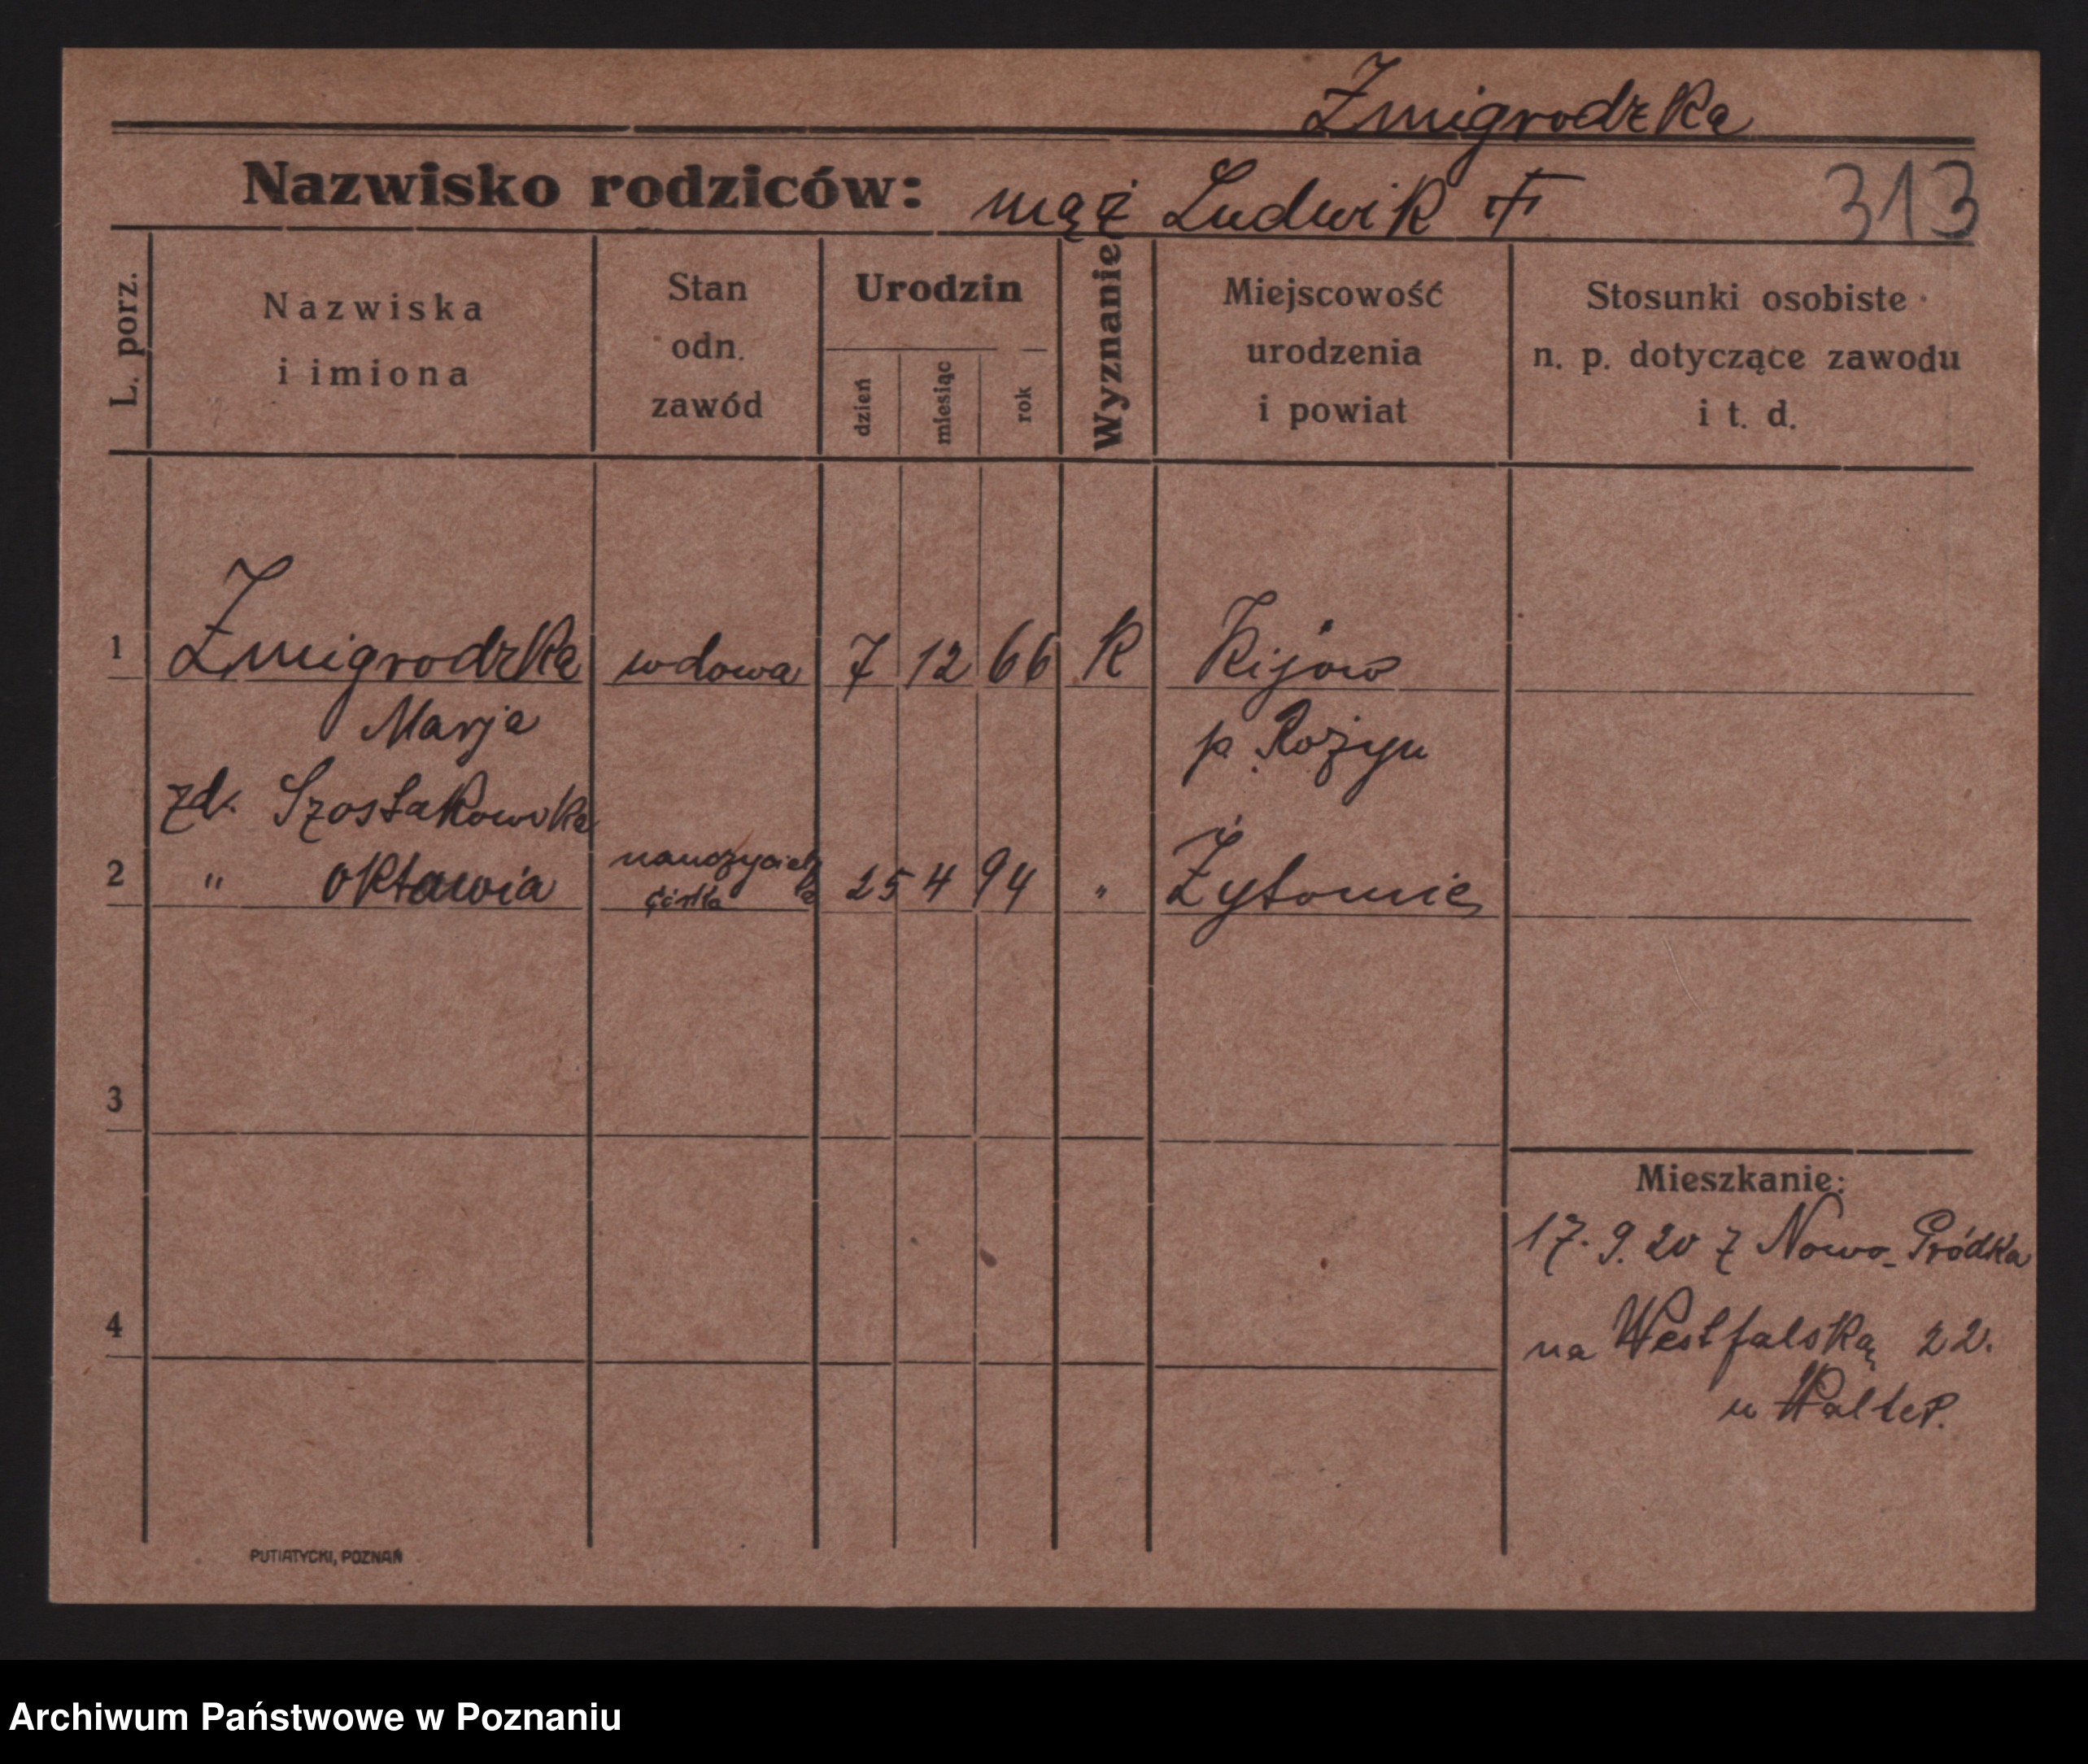 Zmigrodzka
Nazwisko rodziców: mąż Ludwik
313
L. porz.
Nazwiska
i imiona
Stan
odn.
zawód
Urodzin
dzień
miesiąc
rok
Wyznanie
Miejscowość
urodzenia
i powiat
Stosunki osobiste
n. p. dotyczące zawodu
i t. d.
1 Zmigrodzka wdowa 7 12 66 K Kijow
Marja p. Rożyn
zd. Szostakowska
2 " Oktawia nauczycielka 25 4 94 " Żytomie
córka
3
4
Mieszkanie:
17. 9. 20 z Nowo-Gródka
na Westfalską 22.
u Walter.
PUTIATYCKI, POZNAŃ
Archiwum Państwowe w Poznaniu